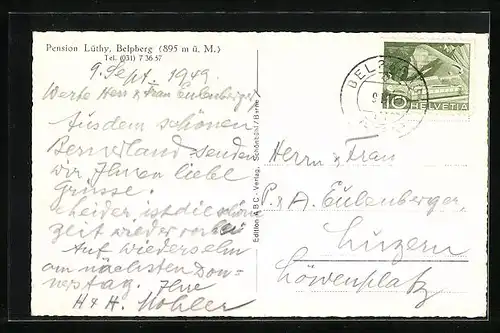 Pension Lüthy, Belpberg (895 m ü. M.)
Tel. (031) 7 36 57
9. Sept. 1949.
Werte Herr & Frau Eulenberger!
Aus dem schönen
Bernerland senden
wir Ihnen liebe
Grüsse.
Leider, ist die schöne
Zeit wieder vorbei
Auf Wiedersehn
am nächsten Don-
nerstag. Ihre
H & H. Mohler
Edition A B C - Verlag, Schönbühl/Berne
BELP
10 HELVETIA
Herrn & Frau
P. & A. Eulenberger,
Luzern
Löwenplatz